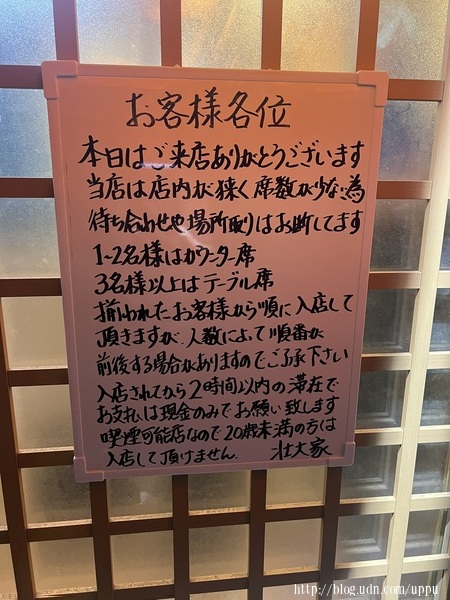 お客様各位
本日はご来店ありがとうございます
当店は店内が狭く席数が少ない為
待ち合わせや場所取りはお断してます
1~2名様はカウンター席
3名様以上はテーブル席
揃われたお客様から順に入店して
頂きますが、人数によって順番が
前後する場合がありますのでご了承下さい
入店されてから2時間以内の滞在で
お支払は現金のみでお願い致します
喫煙可能店なので20歳未満の方は
入店して頂けません。 壮大家
http://blog.udn.com/uppu